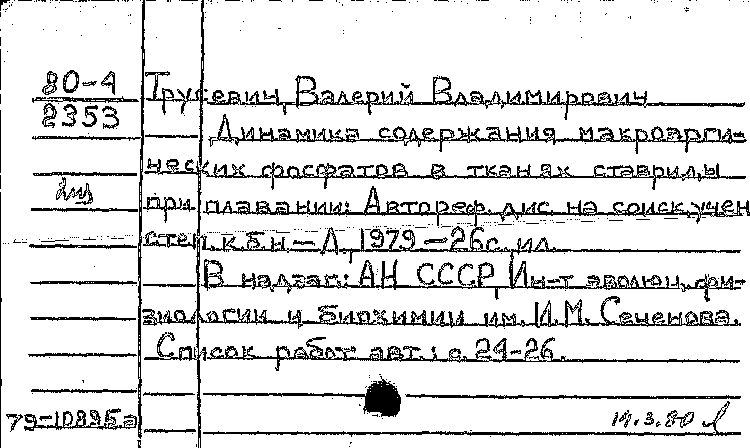 80-4
2353
Трусевич, Валерий Владимирович
Динамика содержания макроэрги-
ческих фосфатов в тканях ставриды
при плавании: Автореф. дис. на соиск. учен
степ. к.б.н. — Л., 1979. — 26 с. ил.
В надзаг.: АН СССР, Ин-т эволюц. фи-
зиологии и биохимии им. И.М. Сеченова.
Список работ авт.: с. 24-26.
79-10895а
14.3.80